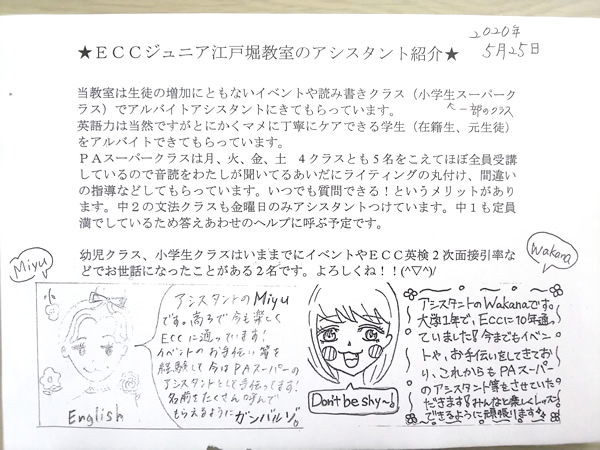 2020年
5月25日
★ECCジュニア江戸堀教室のアシスタント紹介★
当教室は生徒の増加にともないイベントや読み書きクラス（小学生スーパーク
ラス）でアルバイトアシスタントにきてもらっています。
一部のクラス
英語力は当然ですがとにかくマメに丁寧にケアできる学生（在籍生、元生徒）
をアルバイトできてもらっています。
PAスーパークラスは月、火、金、土　4クラスとも5名をこえてほぼ全員受講
しているので音読をわたしが聞いてるあいだにライティングの丸付け、間違い
の指導などしてもらっています。いつでも質問できる！というメリットがあり
ます。中2の文法クラスも金曜日のみアシスタントつけています。中1も定員
満でしているため答えあわせのヘルプに呼ぶ予定です。
幼児クラス、小学生クラスはいままでにイベントやECC英検2次面接引率な
どでお世話になったことがある2名です。よろしくね！！(^▽^)/
Miyu
Wakana
アシスタントのMiyu
です。高3で今も楽しく
ECCに通っています！
イベントのお手伝い等を
経験して今はPAスーパーの
アシスタントとして手伝ってます！
名前をたくさん呼んで
もらえるようにガンバルゾ。
English
Don't be shy～!
アシスタントのWakanaです。
大学1年で、ECCに10年通っ
ていました！今までもイベン
トや、お手伝いをしてきてお
り、これからもPAスーパー
のアシスタント等をさせていた
だきます！みんなと楽しくレッスン
できるように頑張ります